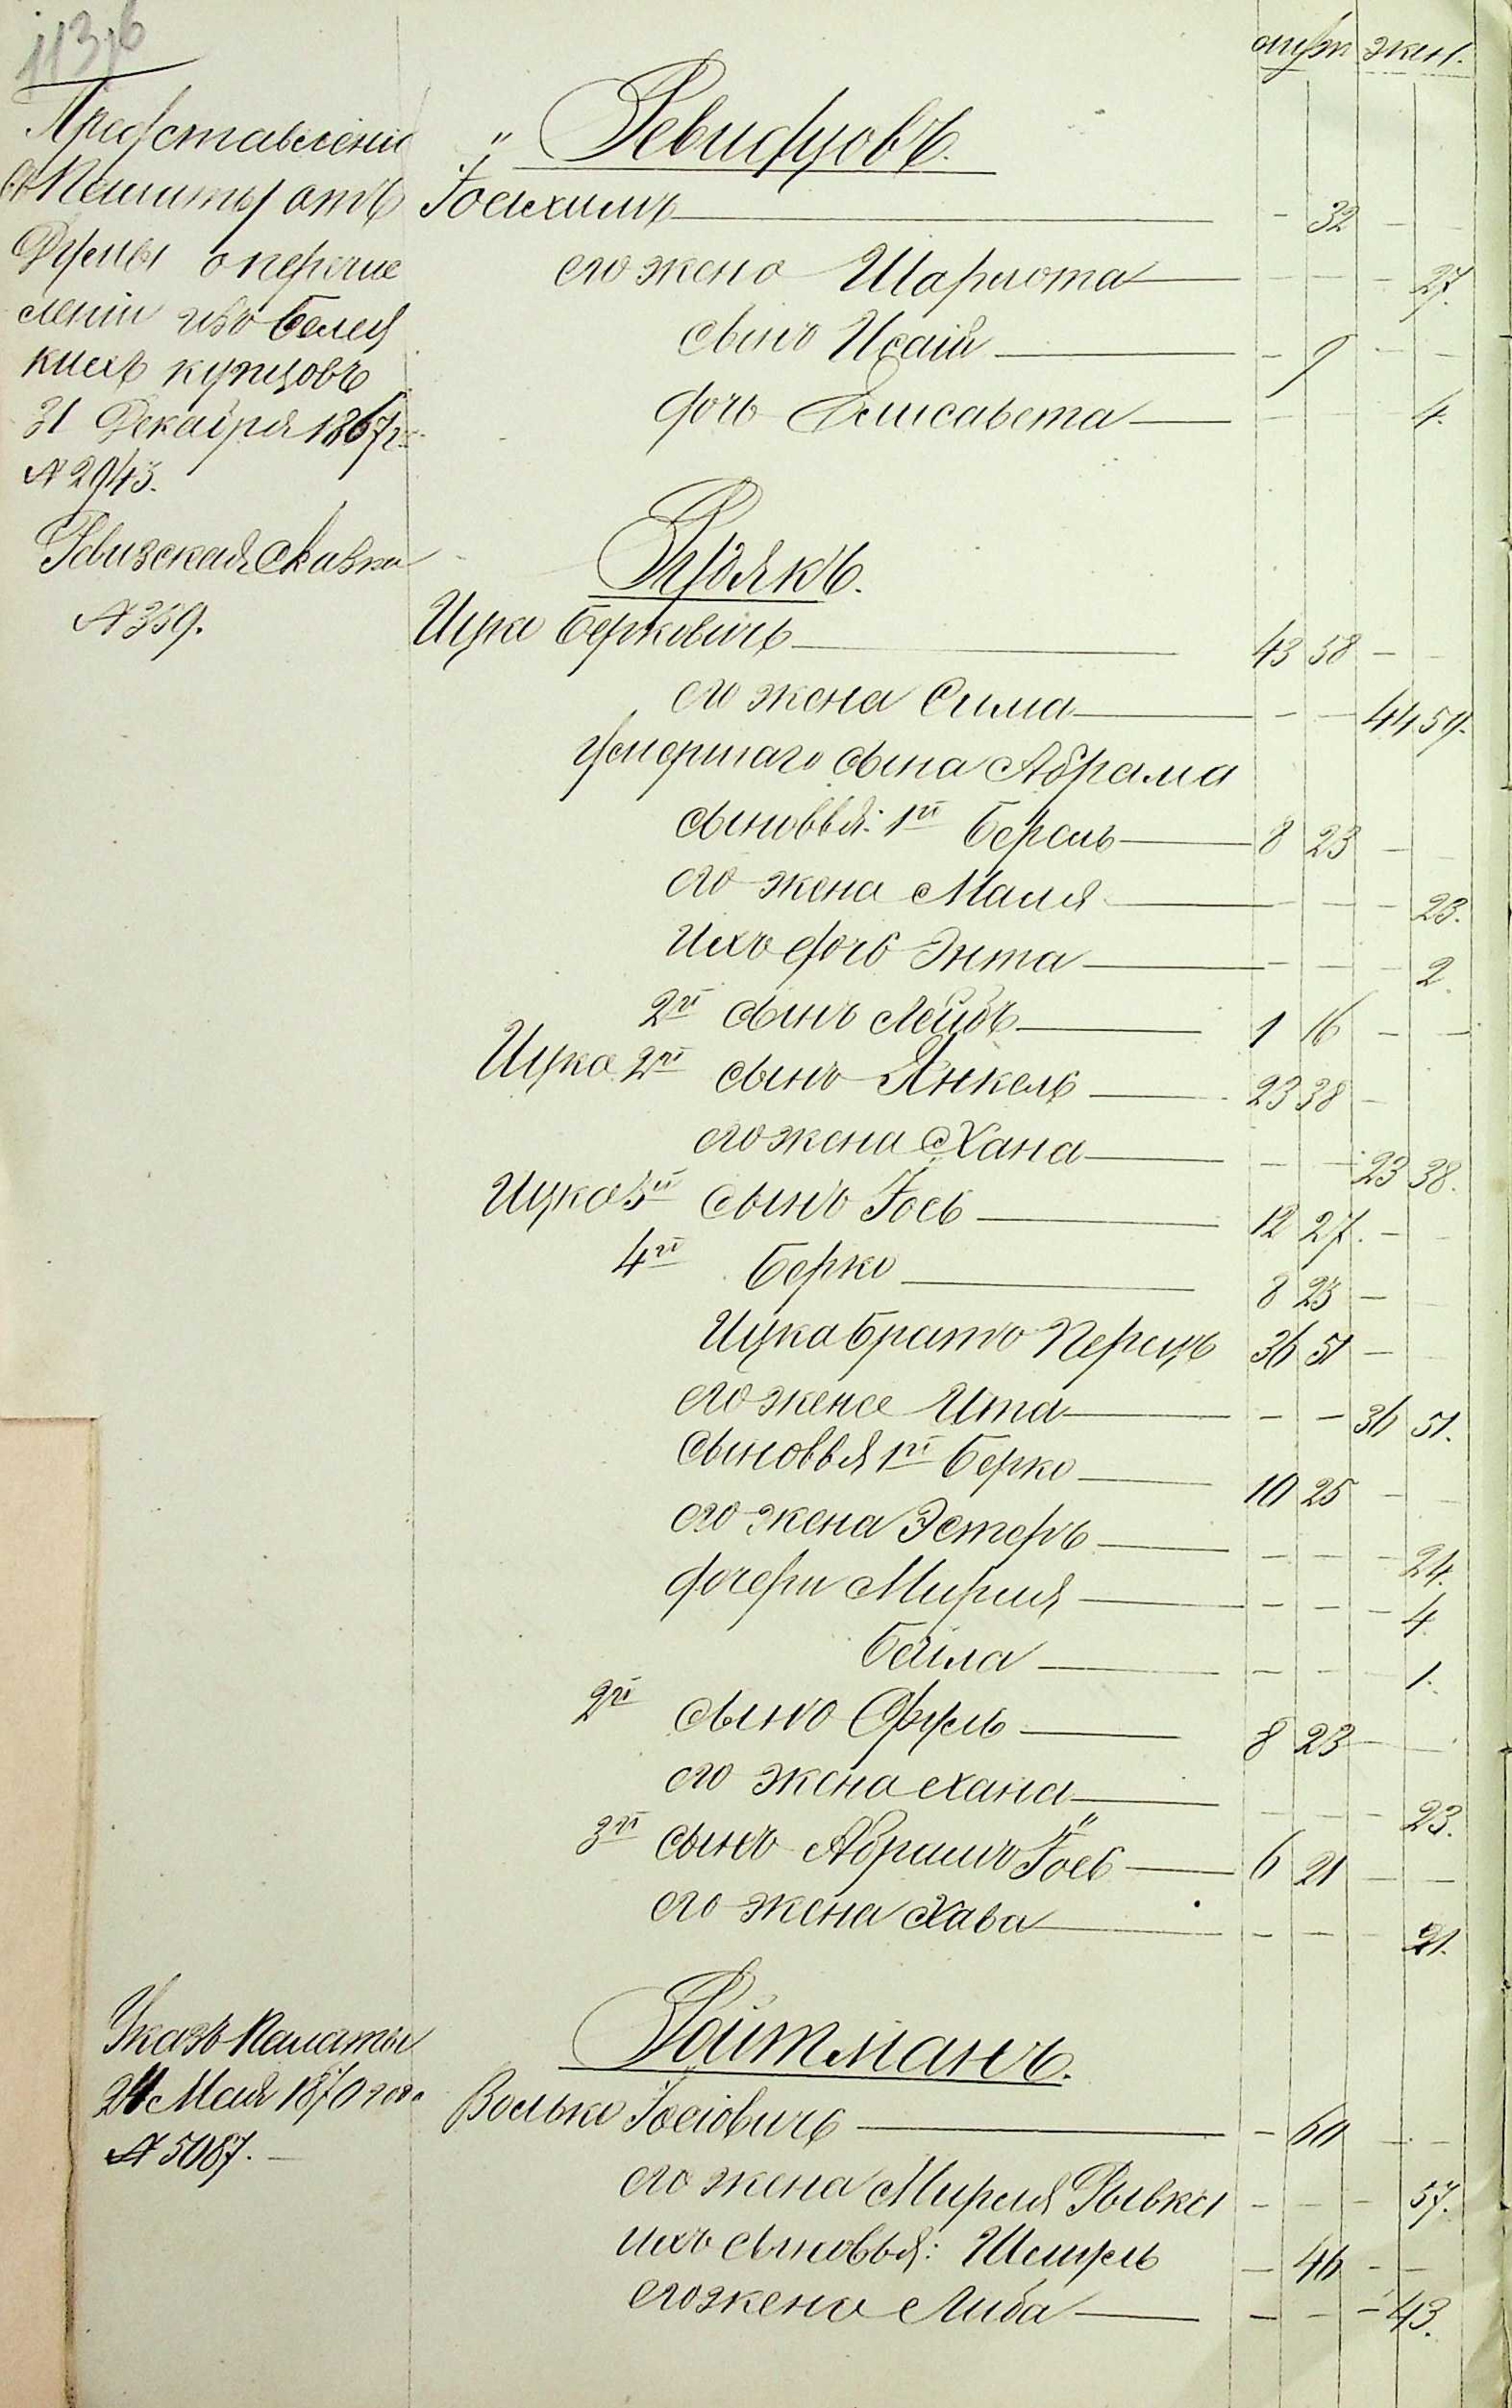 113,б
муж. жен.
Представленіе
въ Палату отъ
Думы о перечис
леніи изъ Белец
кихъ купцовъ
31 Декабря 1867 г.
№ 2943.
Ревизская Сказка
№ 359.
" Ревидцовъ.
Іоахимъ — 32 — —
его жена Шарлота — — — 27.
сынъ Исаія — 9 — —
дочь Елисавета — — — 4.
Рудякъ.
Ицко Берковичъ 43 58 — —
его жена Сима — — 44 59.
умершаго сына Абрама
сыновья: 1й Берель 8 23 — —
его жена Маля — — — 23.
ихъ дочь Энта — — — 2.
2й сынъ Лейбъ 1 16 — —
Ицка 2й сынъ Янкель 23 38 —
его жена Хана — — 23 38.
Ицка 3й сынъ Іось 12 27. — —
4й Берко 8 23 — —
Ицка братъ Перецъ 36 51 — —
его жена Ита — — 36 51.
сыновья 1й Берко 10 25 — —
его жена Эстеръ — — — 24.
дочери Мирля — — — 4
Бейла — — — 1.
2й сынъ Сруль 8 23 — —
его жена Хана — — — 23.
3й сынъ Абрамъ "Іось 6 21 — —
его жена Хава — — — 21.
Указъ Палаты
24 Мая 1870 года
№ 5087. —
Ройтманъ.
Волько Іосіовичъ — 60 — —
его жена Мирля Рывка — — — 57.
ихъ сыновья: Шмуль — 46 — —
его жена Либа — — — 43.